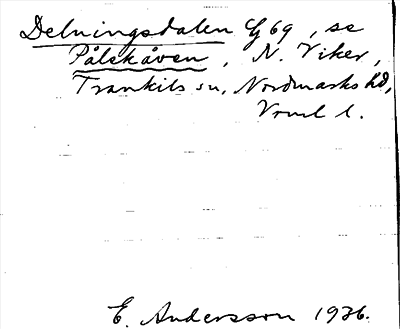 Delningsdalen G69, se
Pålskåven, N. Viker,
Trankils sn, Nordmarks hd,
Vrml l.
E. Andersson 1936.